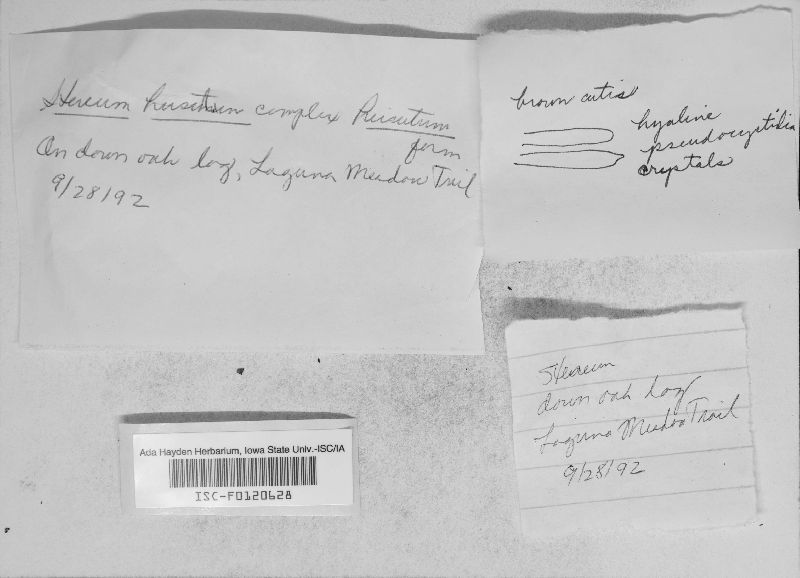 Stereum hirsutum complex hirsutum
form
On down oak log, Laguna Meadow Trail
9/28/92
brown cutis
hyaline
pseudocystidia
crystals
Stereum
down oak log
Laguna Meadow Trail
9/28/92
Ada Hayden Herbarium, Iowa State Univ.-ISC/IA
ISC-F0120628